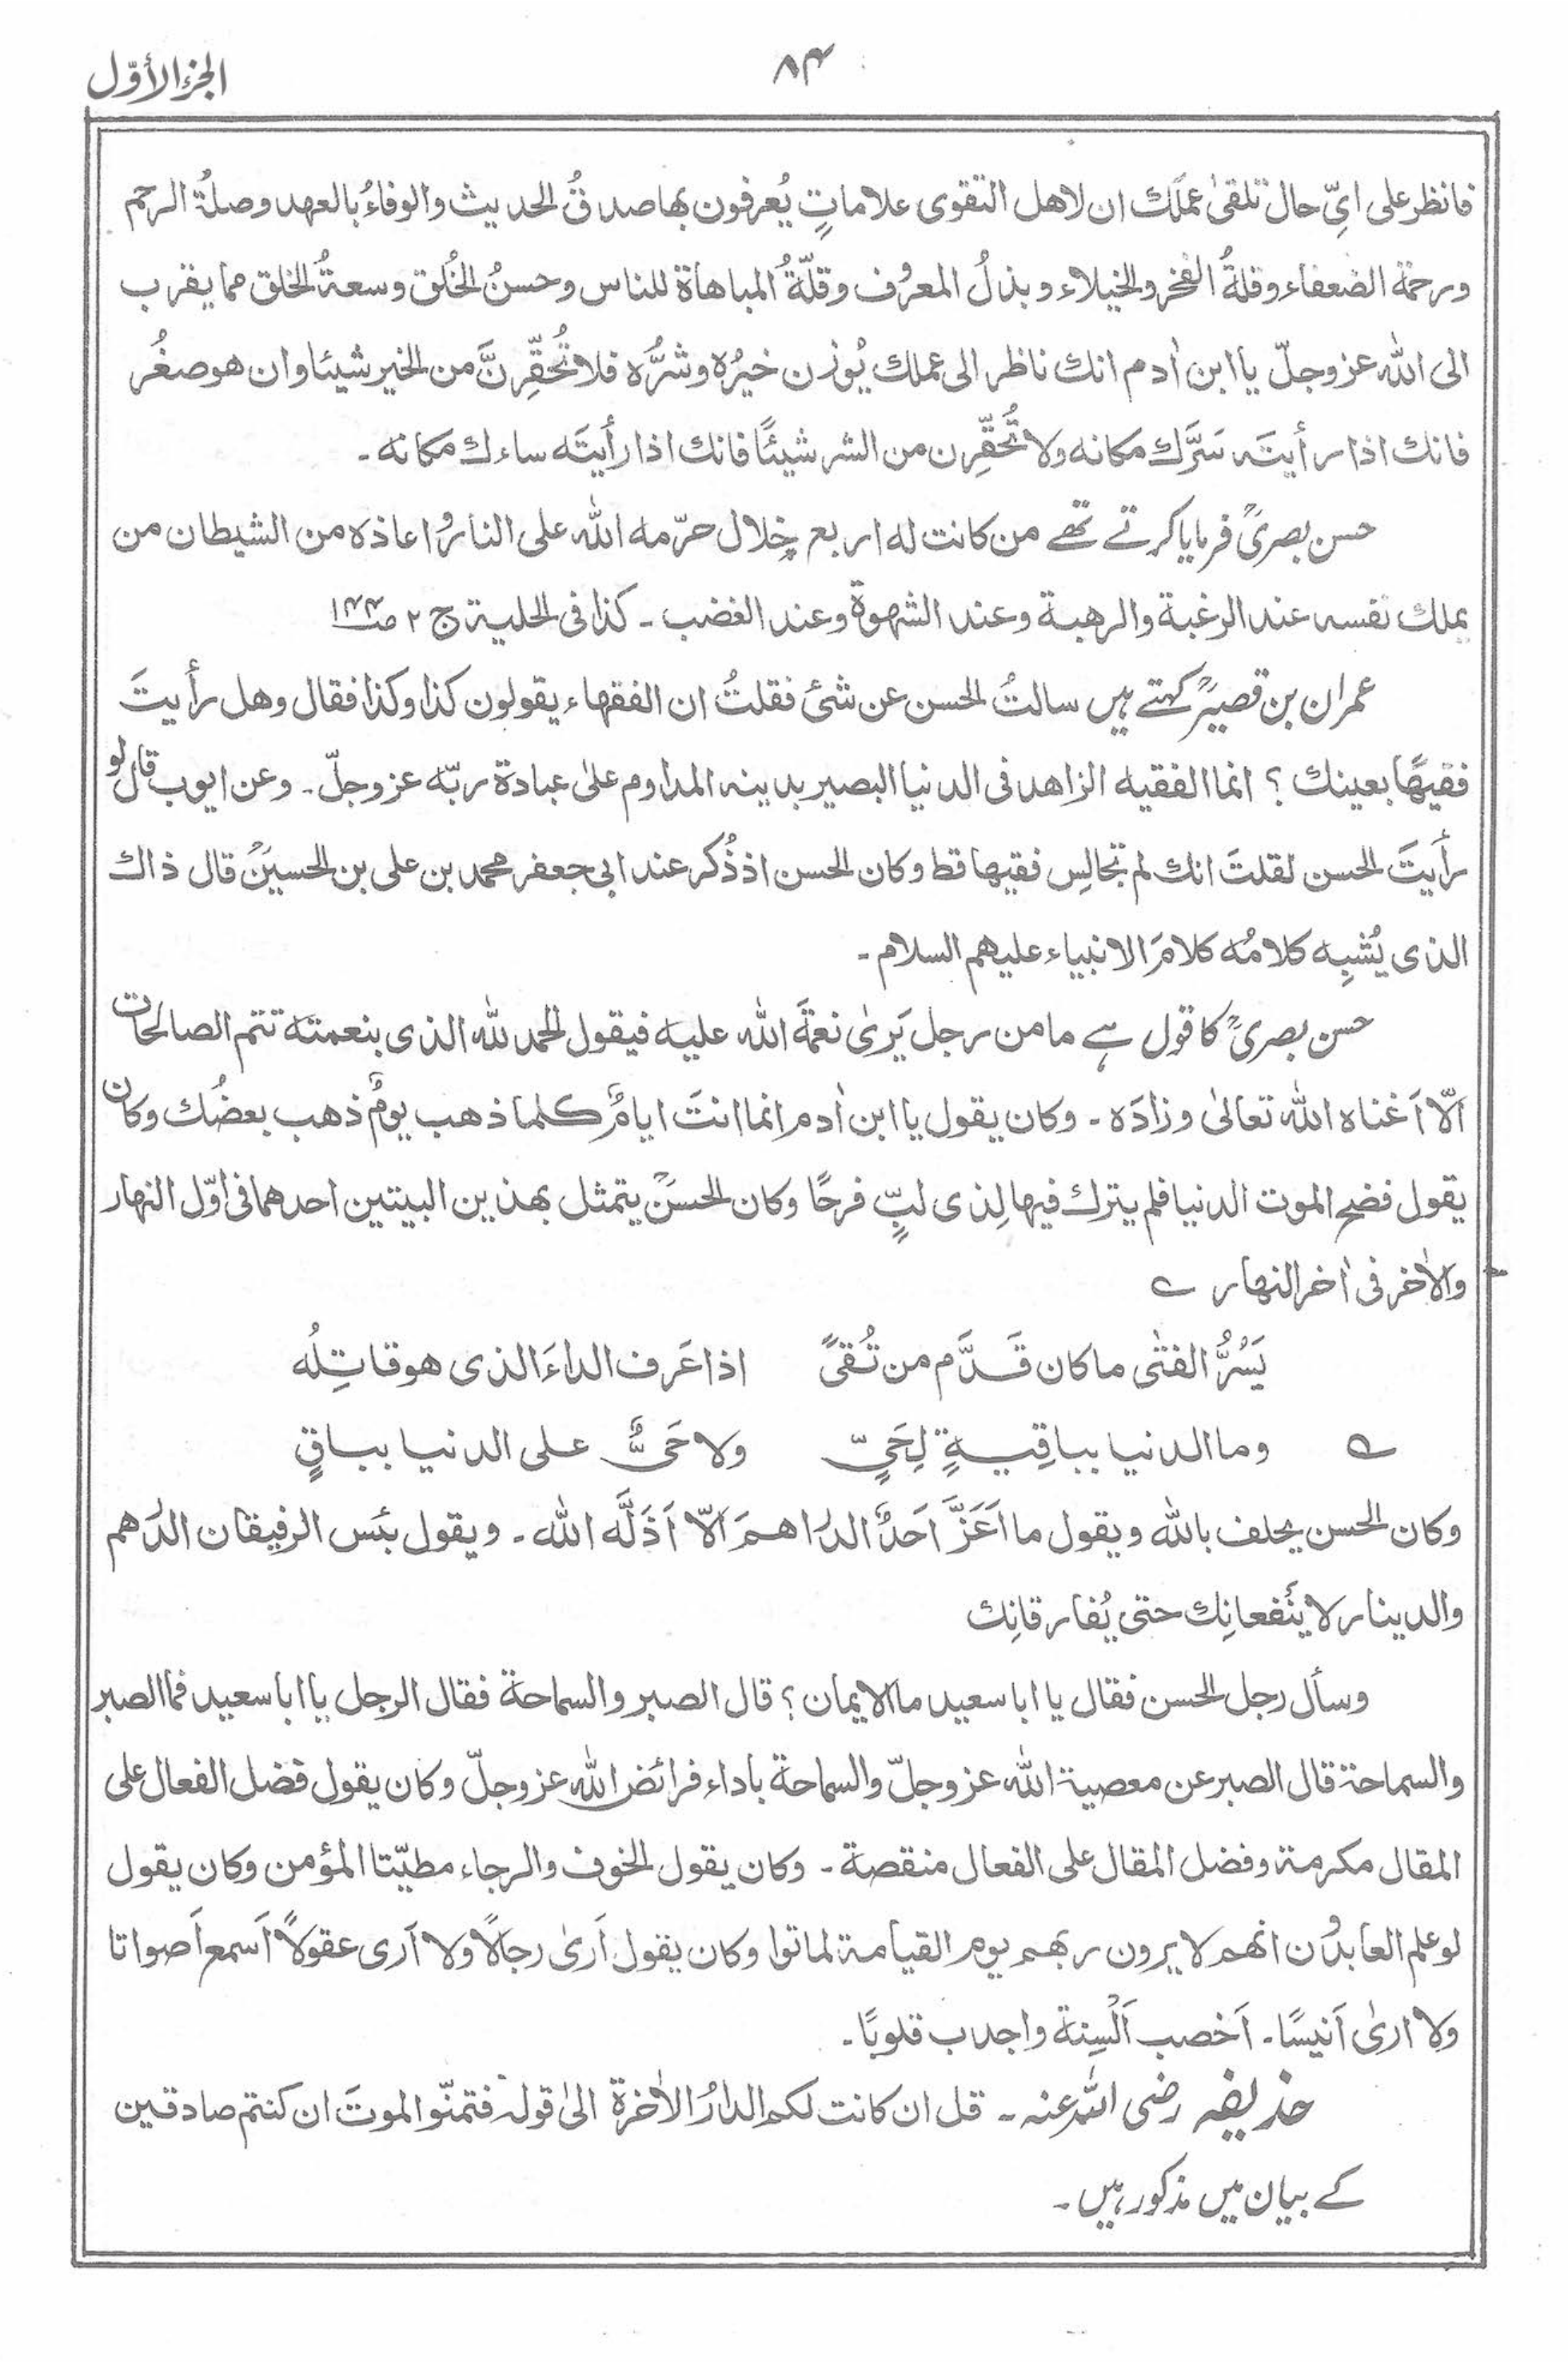 الجزء الأوّل
۸۴
فانظر على اىّ حال تلقىٰ عملَك ان لاهل التقوى علاماتٍ يُعرفون بها صدقُ الحديث والوفاءُ بالعهد وصلةُ الرحم
ورحمة الضعفاء وقلةُ الفخر والخيلاء وبذلُ المعرُوف وقلّةُ المباهاة للناس وحسنُ الخُلق وسعةُ الخلق مما يقرب
الى الله عزوجلّ يا ابن اٰدم انك ناظر الى عملك يُوزن خيرُه وشرُّه فلا تُحقِّرنَّ من الخير شيئا وان هو صغُر
فانك اذا رأيتَه سَرَّك مكانه ولا تُحقِّرن من الشر شيئًا فانك اذا رأيتَه ساءك مكانه ۔
حسن بصریؒ فرمایا کرتے تھے من كانت له اربع خِلال حرّمه الله على النار واعاذه من الشيطان من
يملك نفسه عند الرغبة والرهبة وعند الشهوة وعند الغضب ۔ كذا فى الحلية ج ۲ ص۱۴۴
عمران بن قصیرؒ کہتے ہیں سالتُ الحسن عن شئ فقلتُ ان الفقهاء يقولون كذا وكذا فقال وهل رأيتَ
فقيهًا بعينك ؟ انما الفقيه الزاهد فى الدنيا البصير بدينه المداوم علىٰ عبادة ربّه عزوجلّ ۔ وعن ايوب قال لو
رأيتَ الحسن لقلتَ انك لم تجالِس فقيها قط وكان الحسن اذ ذُكر عند ابى جعفر محمد بن على بن الحسينؒ قال ذاك
الذى يُشبِه كلامُه كلامَ الانبياء عليهم السلام ۔
حسن بصریؒ کا قول ہے ما من رجل يَرىٰ نعمةَ الله عليه فيقول الحمد لله الذى بنعمته تتم الصالحات
اِلّا اَغناه الله تعالىٰ وزادَه ۔ وكان يقول يا ابن اٰدم انما انتَ ايامٌ كلما ذهب يومٌ ذهب بعضُك وكان
يقول فضح الموت الدنيا فلم يترك فيها لِذى لبٍّ فرحًا وكان الحسنؒ يتمثل بهذين البيتين احدهما فى اوّل النهار
والاٰخر فى اٰخر النهار ے
يَسُرُّ الفتٰى ما كان قَدَّم من تُقىً اذا عَرف الداءَ الذى هو قاتِلُه
ے وما الدنيا بباقِيةٍ لِحَيٍّ ولا حَىٌّ على الدنيا بباقٍ
وكان الحسن يحلف بالله ويقول ما اَعَزَّ اَحَدٌ الدراهمَ اِلّا اَذَلَّه الله ۔ ويقول بئس الرفيقان الدرهم
والدينار لا ينفعانِك حتى يُفارقانِك
وسأل رجل الحسن فقال يا ابا سعيد ما الايمان ؟ قال الصبر والسماحة فقال الرجل يا ابا سعيد فما الصبر
والسماحة قال الصبر عن معصية الله عزوجلّ والسماحة باداء فرائض الله عزوجلّ وكان يقول فضل الفعال على
المقال مكرمة وفضل المقال على الفعال منقصة ۔ وكان يقول الخوف والرجاء مطيّتا المؤمن وكان يقول
لو علم العابدُون انهم لا يرون ربهم يوم القيامة لماتوا وكان يقول اَرىٰ رجالًا ولا اَرى عقولًا اَسمع اَصواتا
ولا ارىٰ اَنيسًا ۔ اَخصب اَلْسِنة واجدب قلوبًا ۔
حذیفہ رضی اللہ عنہ ۔ قل ان كانت لكم الدارُ الاٰخرة الىٰ قوله فتمنّوا الموتَ ان كنتم صادقين
کے بیان میں مذکور ہیں ۔